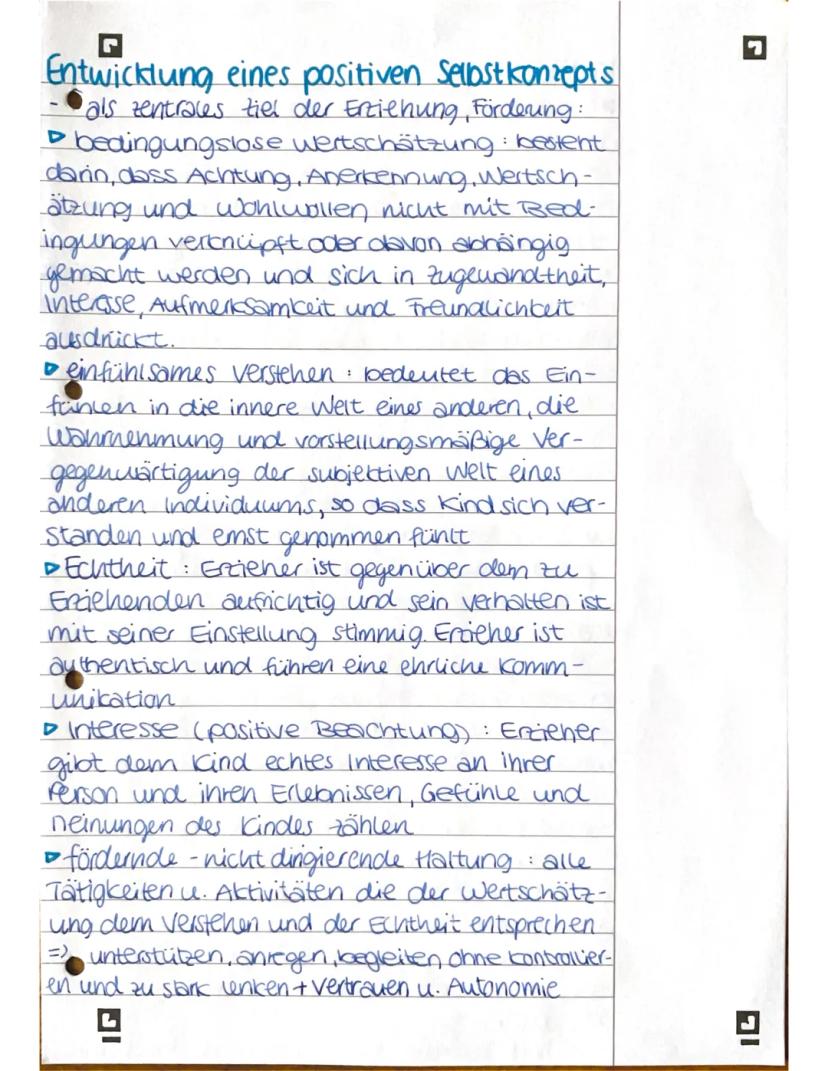 Entwicklung eines positiven Selbstkonzepts
- als zentrales Ziel der Erziehung, Förderung:
▷ bedingungslose Wertschätzung : besteht
darin, dass Achtung, Anerkennung, Wertsch-
ätzung und Wohlwollen nicht mit Bed-
ingungen verknüpft oder davon abhängig
gemacht werden und sich in Zugewandtheit,
Interesse, Aufmerksamkeit und Freundlichkeit
ausdrückt.
▷ einfühlsames Verstehen : bedeutet das Ein-
fühlen in die innere Welt eines anderen, die
Wahrnehmung und vorstellungsmäßige Ver-
gegenwärtigung der subjektiven Welt eines
anderen Individuums, so dass Kind sich ver-
standen und ernst genommen fühlt
▷ Echtheit : Erzieher ist gegenüber dem zu
Erziehenden aufrichtig und sein Verhalten ist
mit seiner Einstellung stimmig. Erzieher ist
authentisch und führen eine ehrliche Komm-
unikation
▷ Interesse (positive Beachtung) : Erzieher
gibt dem Kind echtes Interesse an ihrer
Person und ihren Erlebnissen, Gefühle und
Meinungen des Kindes zählen
▷ fördernde - nicht dirigierende Haltung : alle
Tätigkeiten u. Aktivitäten die der Wertschätz-
ung dem Verstehen und der Echtheit entsprechen
=> unterstützen, anregen, begleiten ohne kontrollier-
en und zu stark lenken + Vertrauen u. Autonomie